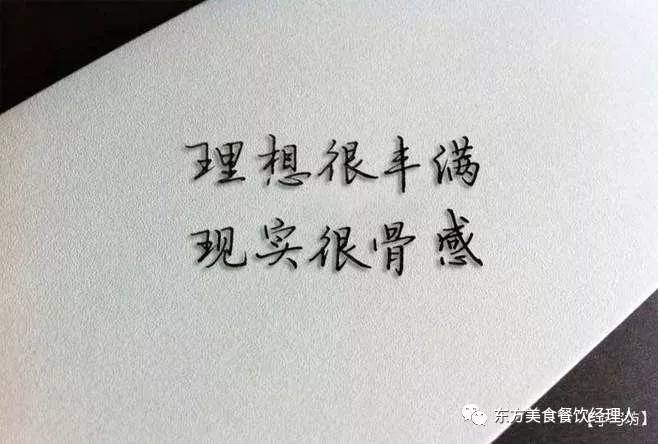 理想很丰满
现实很骨感
东方美食餐饮经理人